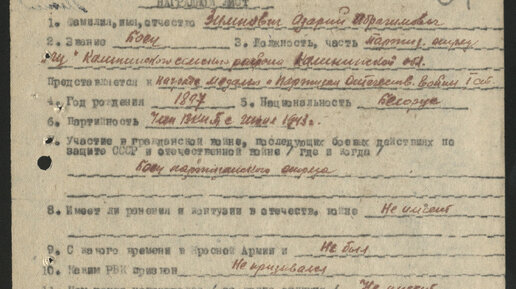 НАГРАДНОЙ ЛИСТ
1. Фамилия, имя, отчество Азарий Абрамович
2. Звание Боец 3. Должность, часть Партиз. отряд
Калининского района Калининской обл.
Представляется к награде медалью "Партизан Отечеств. войны" I ст.
4. Год рождения 1897 5. Национальность Белорус
6. Партийность Член ВКП/б/ с июня 1943 г.
7. Участие в гражданской войне, последующих боевых действиях по
защите СССР и отечественной войне /где и когда/
Боец партизанского отряда
8. Имеет ли ранения и контузии в отечеств. войне Не имеет
9. С какого времени в Красной Армии и Не был
10. Каким РВК призван Не призывался
Не имеет